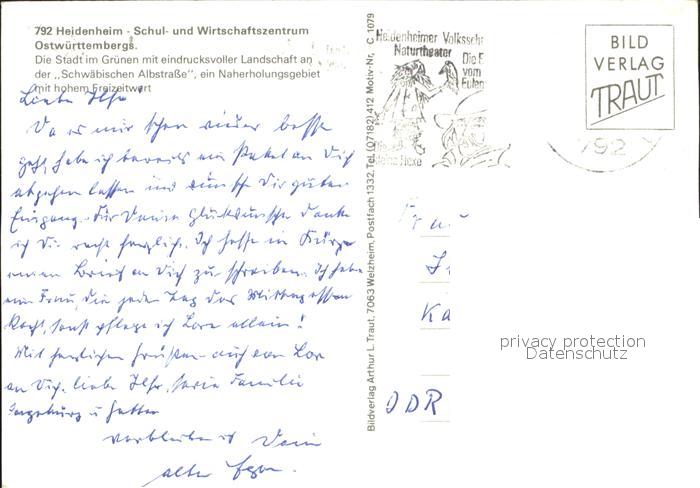 792 Heidenheim - Schul- und Wirtschaftszentrum
Ostwürttembergs.
Die Stadt im Grünen mit eindrucksvoller Landschaft an
der „Schwäbischen Albstraße", ein Naherholungsgebiet
mit hohem Freizeitwert
Liebe Ilse!
Da es mir schon wieder besser
geht, habe ich bereits ein Paket an Dich
abgehen lassen und wünsche Dir guten
Eingang. Für Deine Glückwünsche danke
ich Dir recht herzlich. Ich hoffe in Kürze
einen Brief an Dich zu schreiben. Ich habe
eine Frau, die jeden Tag das Mittagessen
kocht, sonst pflege ich Lore allein!
Mit herzlichen Grüßen auch von Lore
an Dich, liebe Ilse, sowie Familie
u.
verbleibe ich Dein
alter Egon.
Bildverlag Arthur L. Traut, 7063 Welzheim, Postfach 1332, Tel. (07182) 412 Motiv-Nr. C 1079
Heidenheimer Volkssch
Naturtheater
Die
vom
Eulen
Hexe
BILD
VERLAG
TRAUT
792
Frau
Ka
DDR
privacy protection
Datenschutz